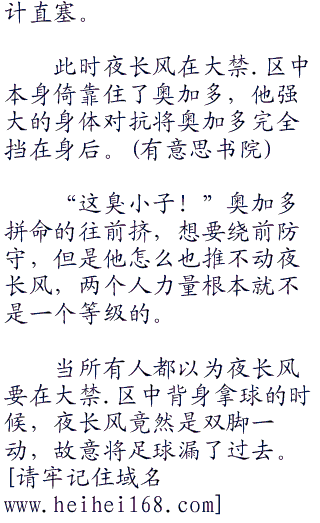 计直塞。
此时夜长风在大禁.区中
本身倚靠住了奥加多，他强
大的身体对抗将奥加多完全
挡在身后。(有意思书院)
“这臭小子！”奥加多
拼命的往前挤，想要绕前防
守，但是他怎么也推不动夜
长风，两个人力量根本就不
是一个等级的。
当所有人都以为夜长风
要在大禁.区中背身拿球的时
候，夜长风竟然是双脚一
动，故意将足球漏了过去。
[请牢记住域名
www.heihei168.com]